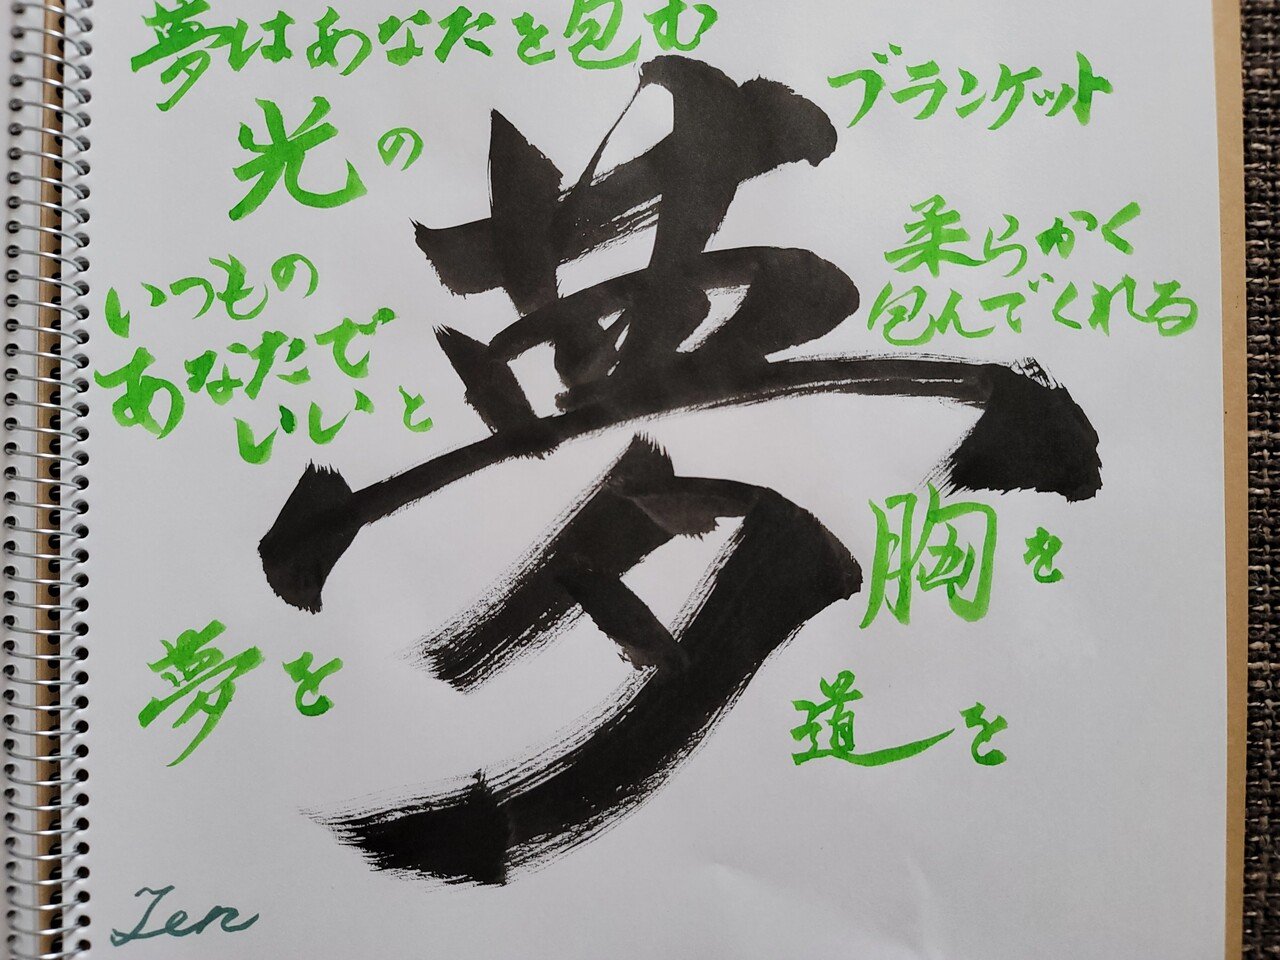 夢はあなたを包む
光の
ブランケット
いつもの
あなたで
いいと
柔らかく
包んでくれる
夢
夢を
胸を
道を
Zen